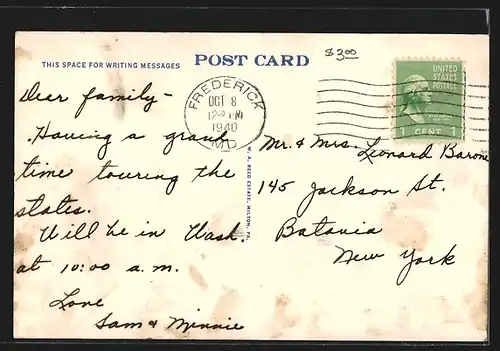 $3.00
THIS SPACE FOR WRITING MESSAGES
POST CARD
UNITED
STATES
POSTAGE
1 CENT 1
FREDERICK
OCT 8
1940
MD.
Dear family -
Having a grand
time touring the
states.
Will be in Wash.
at 10:00 a.m.
Love
Sam & Minnie
Mr. & Mrs. Leonard Barone
145 Jackson St.
Batavia
New York